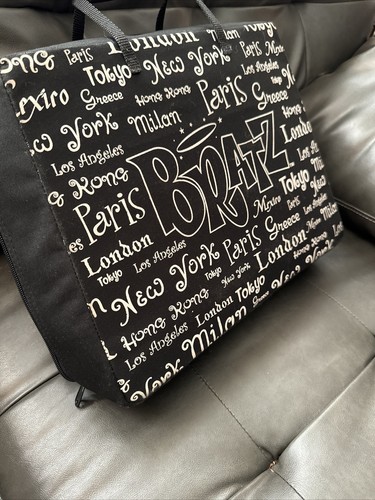 London Paris
Paris New York Paris Mexico
Tokyo Los Angeles
Mexico Greece Hong Kong Paris Greece
New York Milan
Los Angeles London
Hong Kong BRATZ
Paris Mexico Tokyo
London Los Angeles Paris Greece Milan
Tokyo New York London
New York Tokyo
Hong Kong London Tokyo New York
Los Angeles Milan Greece
York